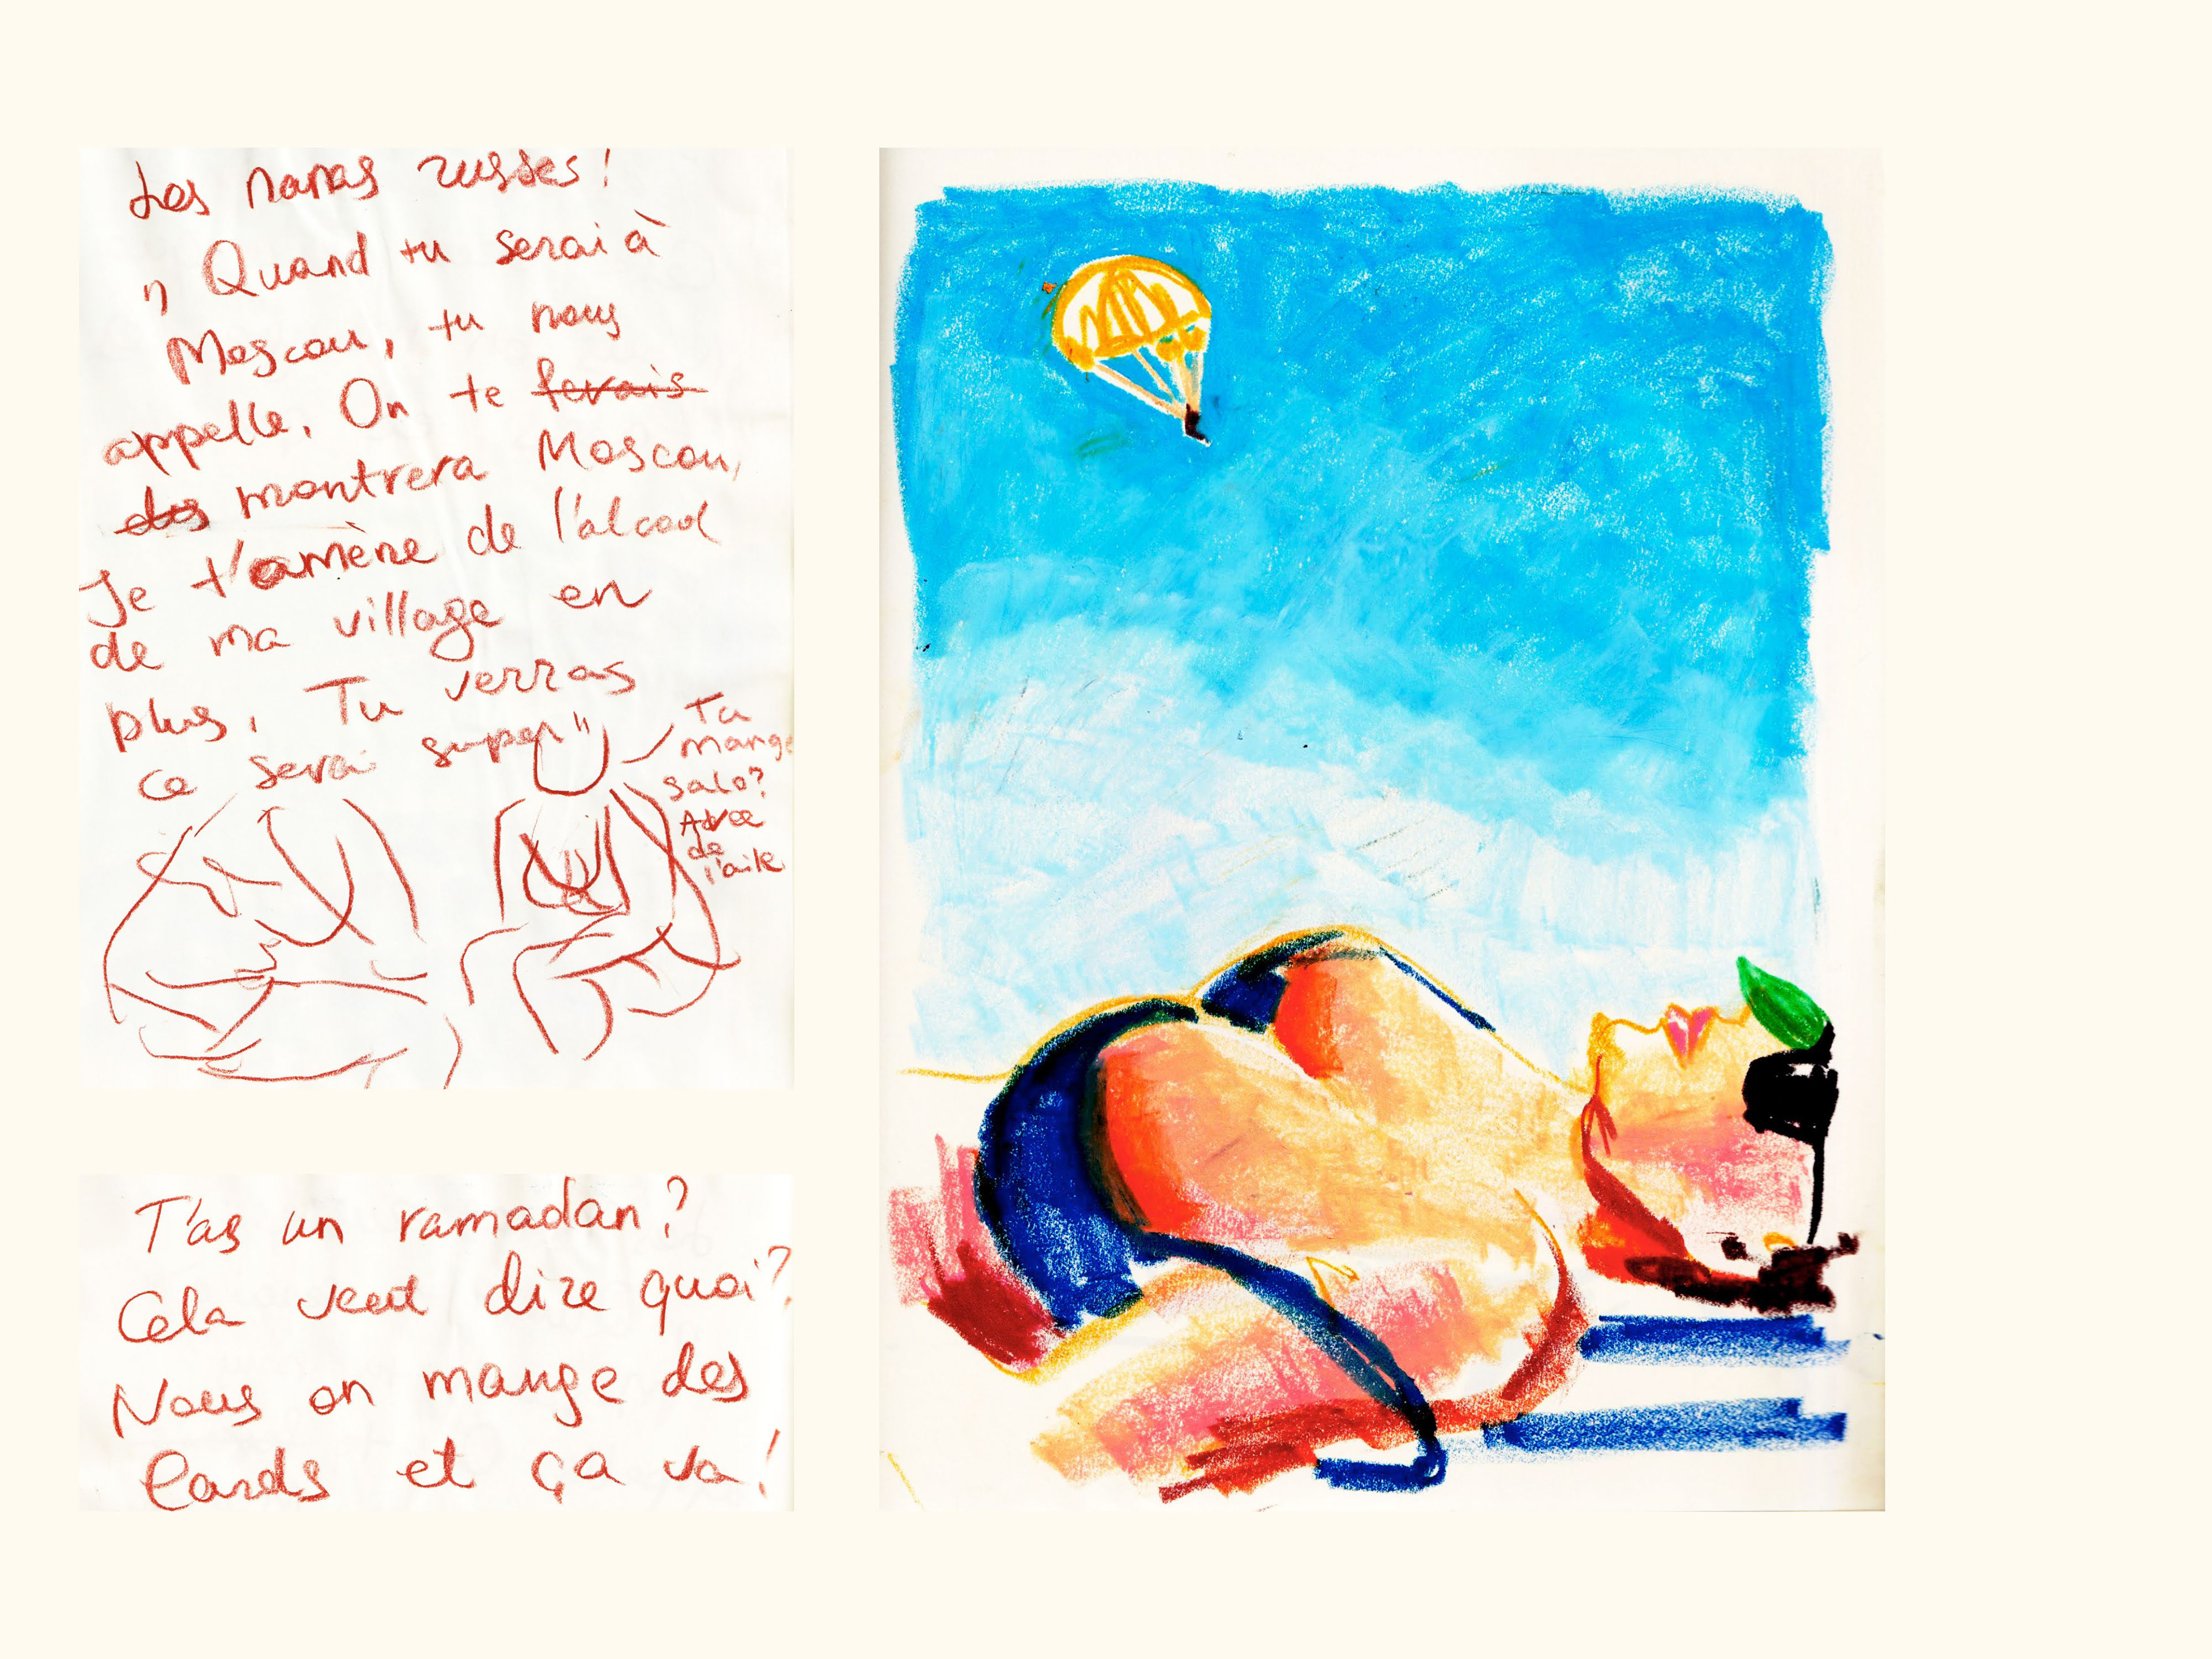 Les nanas russes!
„ Quand tu serai à
Moscou, tu nous
appelle. On te ferais
des montrera Moscou,
Je t'amène de l'alcool
de ma village en
plus. Tu verras
ce serai super"
Ta
mange
salo?
Avec
de
l'aile
T'as un ramadan?
Cela veut dire quoi?
Nous on mange des
lards et ça va!